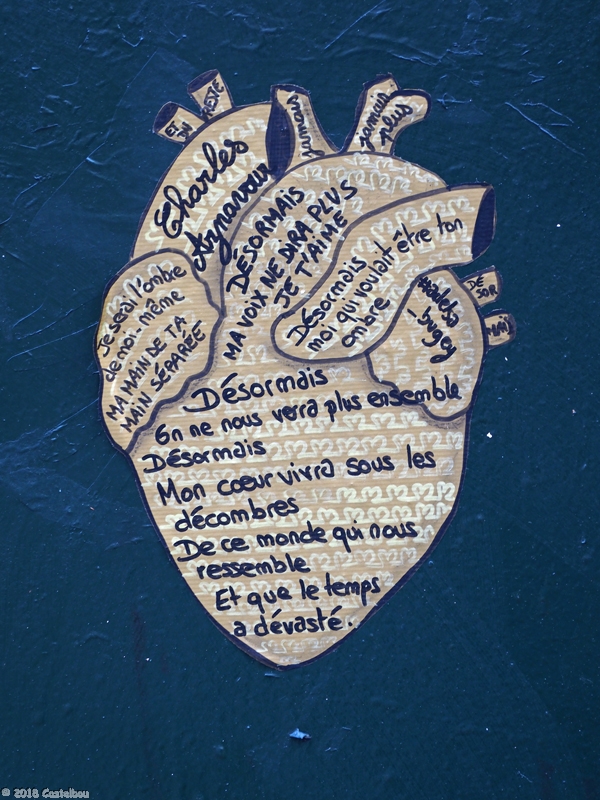 ET
ON
RESTE
jamais
jamais
plus
Charles
Aznavour
DÉSORMAIS
MA VOIX NE DIRA PLUS
JE T'AIME
Désormais
moi qui voulait être ton
ombre
Je serai l'ombre
de moi-même
MA MAIN DE TA
MAIN SÉPARÉE
DÉ
SOR
MAIS
Désormais
On ne nous verra plus ensemble
Désormais
Mon cœur vivra sous les
décombres
De ce monde qui nous
ressemble
Et que le temps
a dévasté.
© 2018 Castelbou